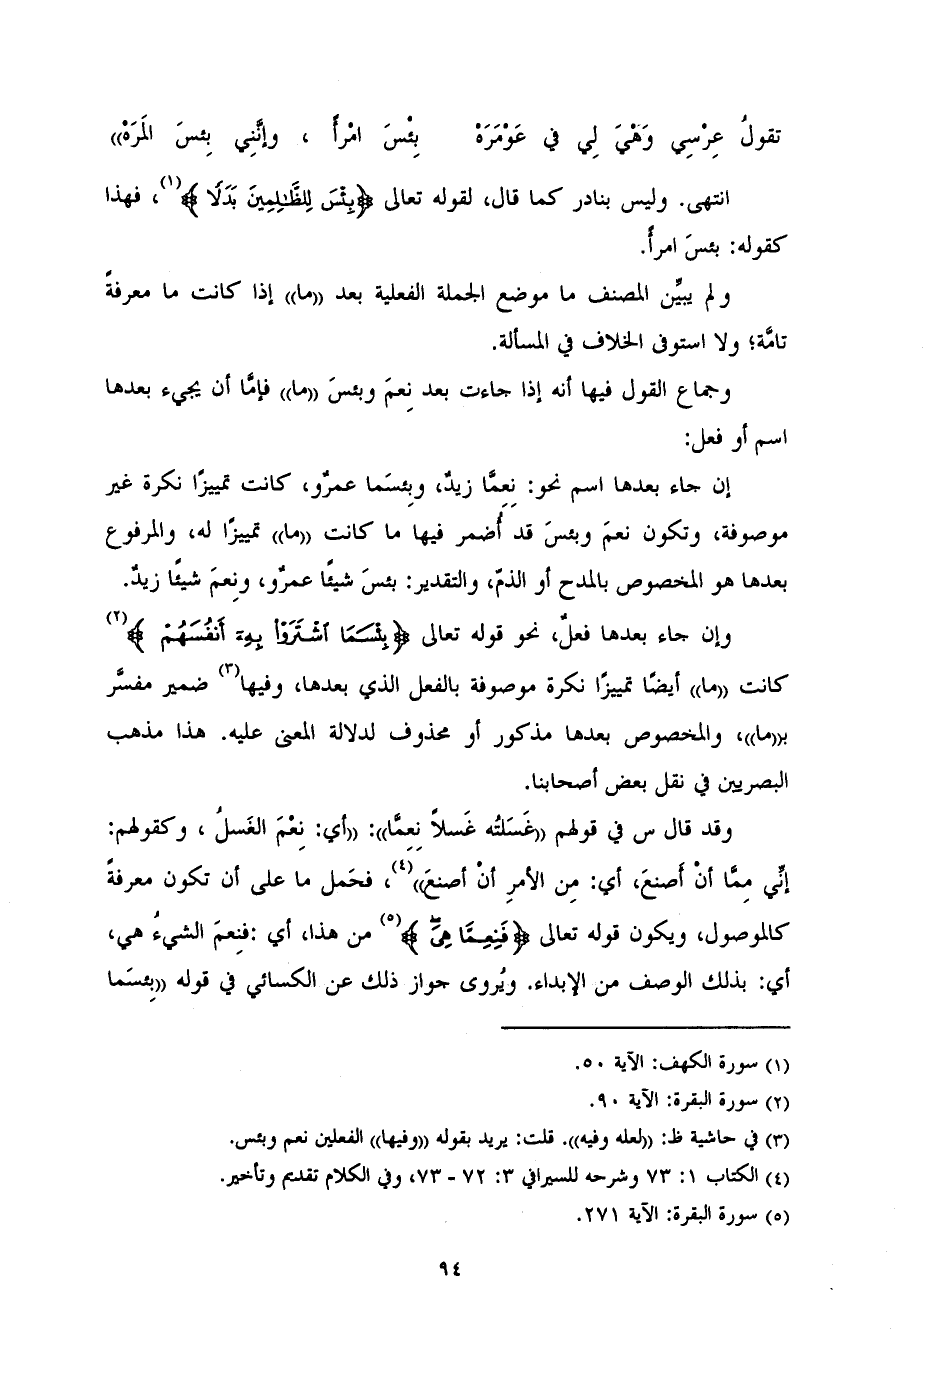 تقولُ عِرْسِي وَهْيَ لِي في عَوْمَرَهْ بِئْسَ امْرأً ، وإنَّنِي بِئسَ المَرَهْ))
انتهى. وليس بنادر كما قال، لقوله تعالى ﴿بِئْسَ لِلظَّٰلِمِينَ بَدَلًا ﴾(١)، فهذا
كقوله: بئسَ امرأً.
ولم يبيِّن المصنف ما موضع الجملة الفعلية بعد ((ما)) إذا كانت ما معرفةً
تامَّة؛ ولا استوفى الخلاف في المسألة.
وجماع القول فيها أنه إذا جاءت بعد نِعمَ وبئسَ ((ما)) فإمَّا أن يجيء بعدها
اسم أو فعل:
إن جاء بعدها اسم نحو: نِعِمَّا زيدٌ، وبِئسَما عمرٌو، كانت تمييزًا نكرة غير
موصوفة، وتكون نعمَ وبئسَ قد أُضمر فيها ما كانت ((ما)) تمييزًا له، والمرفوع
بعدها هو المخصوص بالمدح أو الذمّ، والتقدير: بئسَ شيئًا عمرٌو، ونِعمَ شيئًا زيدٌ.
وإن جاء بعدها فعلٌ، نحو قوله تعالى ﴿بِئْسَمَا ٱشْتَرَوْا۟ بِهِۦٓ أَنفُسَهُمْ ﴾(٢)
كانت ((ما)) أيضًا تمييزًا نكرة موصوفة بالفعل الذي بعدها، وفيها(٣) ضمير مفسَّر
بـ((ما))، والمخصوص بعدها مذكور أو محذوف لدلالة المعنى عليه. هذا مذهب
البصريين في نقل بعض أصحابنا.
وقد قال س في قولهم ((غَسَلتُه غَسلاً نِعِمَّا)): ((أي: نِعْمَ الغَسلُ ، وكقولهم:
إنِّي مِمَّا أنْ أَصنعَ، أي: مِن الأمرِ أنْ أصنعَ))(٤)، فحَمل ما على أن تكون معرفةً
كالموصول، ويكون قوله تعالى ﴿فَنِعِمَّا هِىَ ﴾(٥) من هذا، أي :فنِعمَ الشيءُ هي،
أي: بذلك الوصف من الإبداء. ويُروى جواز ذلك عن الكسائي في قوله ((بِئسَما
(١) سورة الكهف: الآية ٥٠.
(٢) سورة البقرة: الآية ٩٠.
(٣) في حاشية ظ: ((لعله وفيه)). قلت: يريد بقوله ((وفيها)) الفعلين نعم وبئس.
(٤) الكتاب ١: ٧٣ وشرحه للسيرافي ٣: ٧٢ - ٧٣، وفي الكلام تقديم وتأخير.
(٥) سورة البقرة: الآية ٢٧١.
٩٤